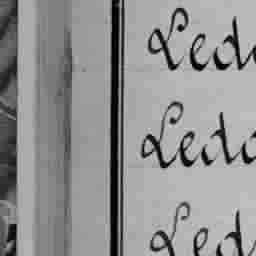 Ledo
Ledo
Led